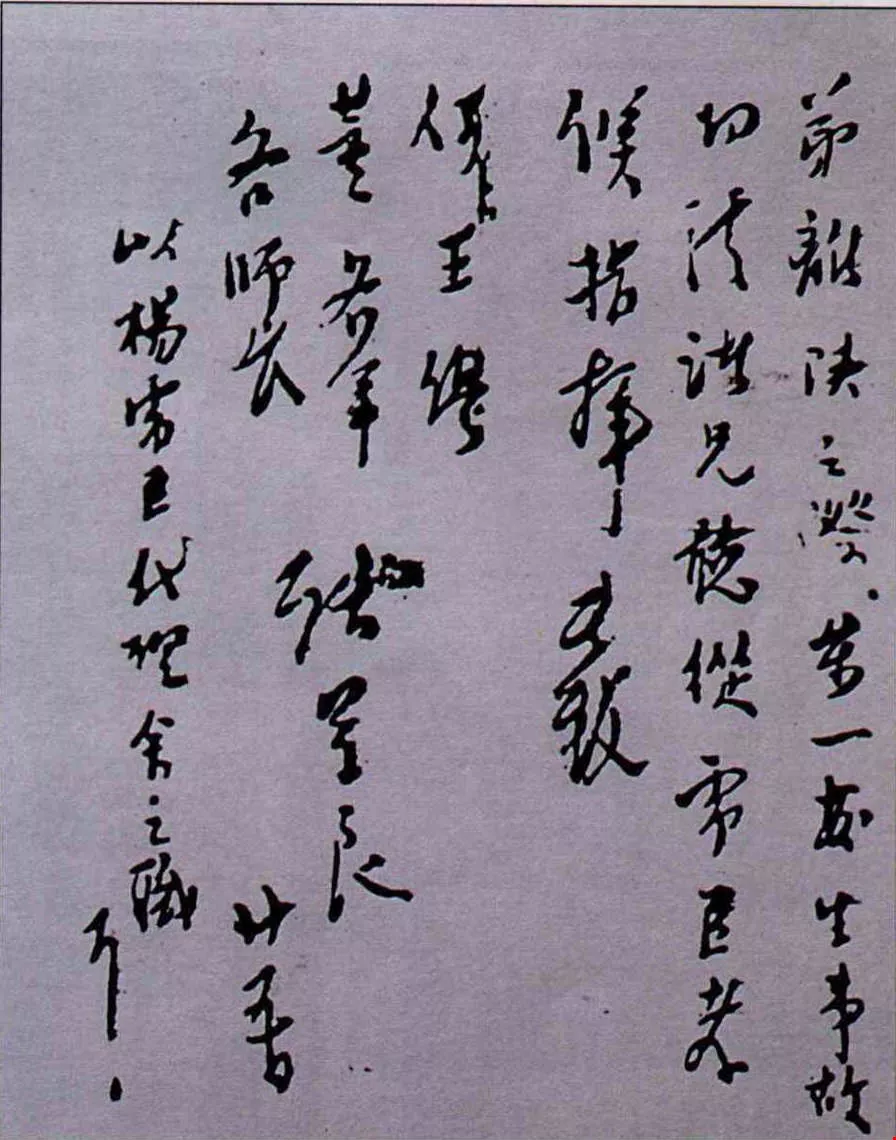 弟離陕之際、萬一發生事故
切請諸兄聽從虎臣孝
候指揮 此致
何王繆
董各軍
各師長
張學良
廿五日
以楊虎臣代理余之職